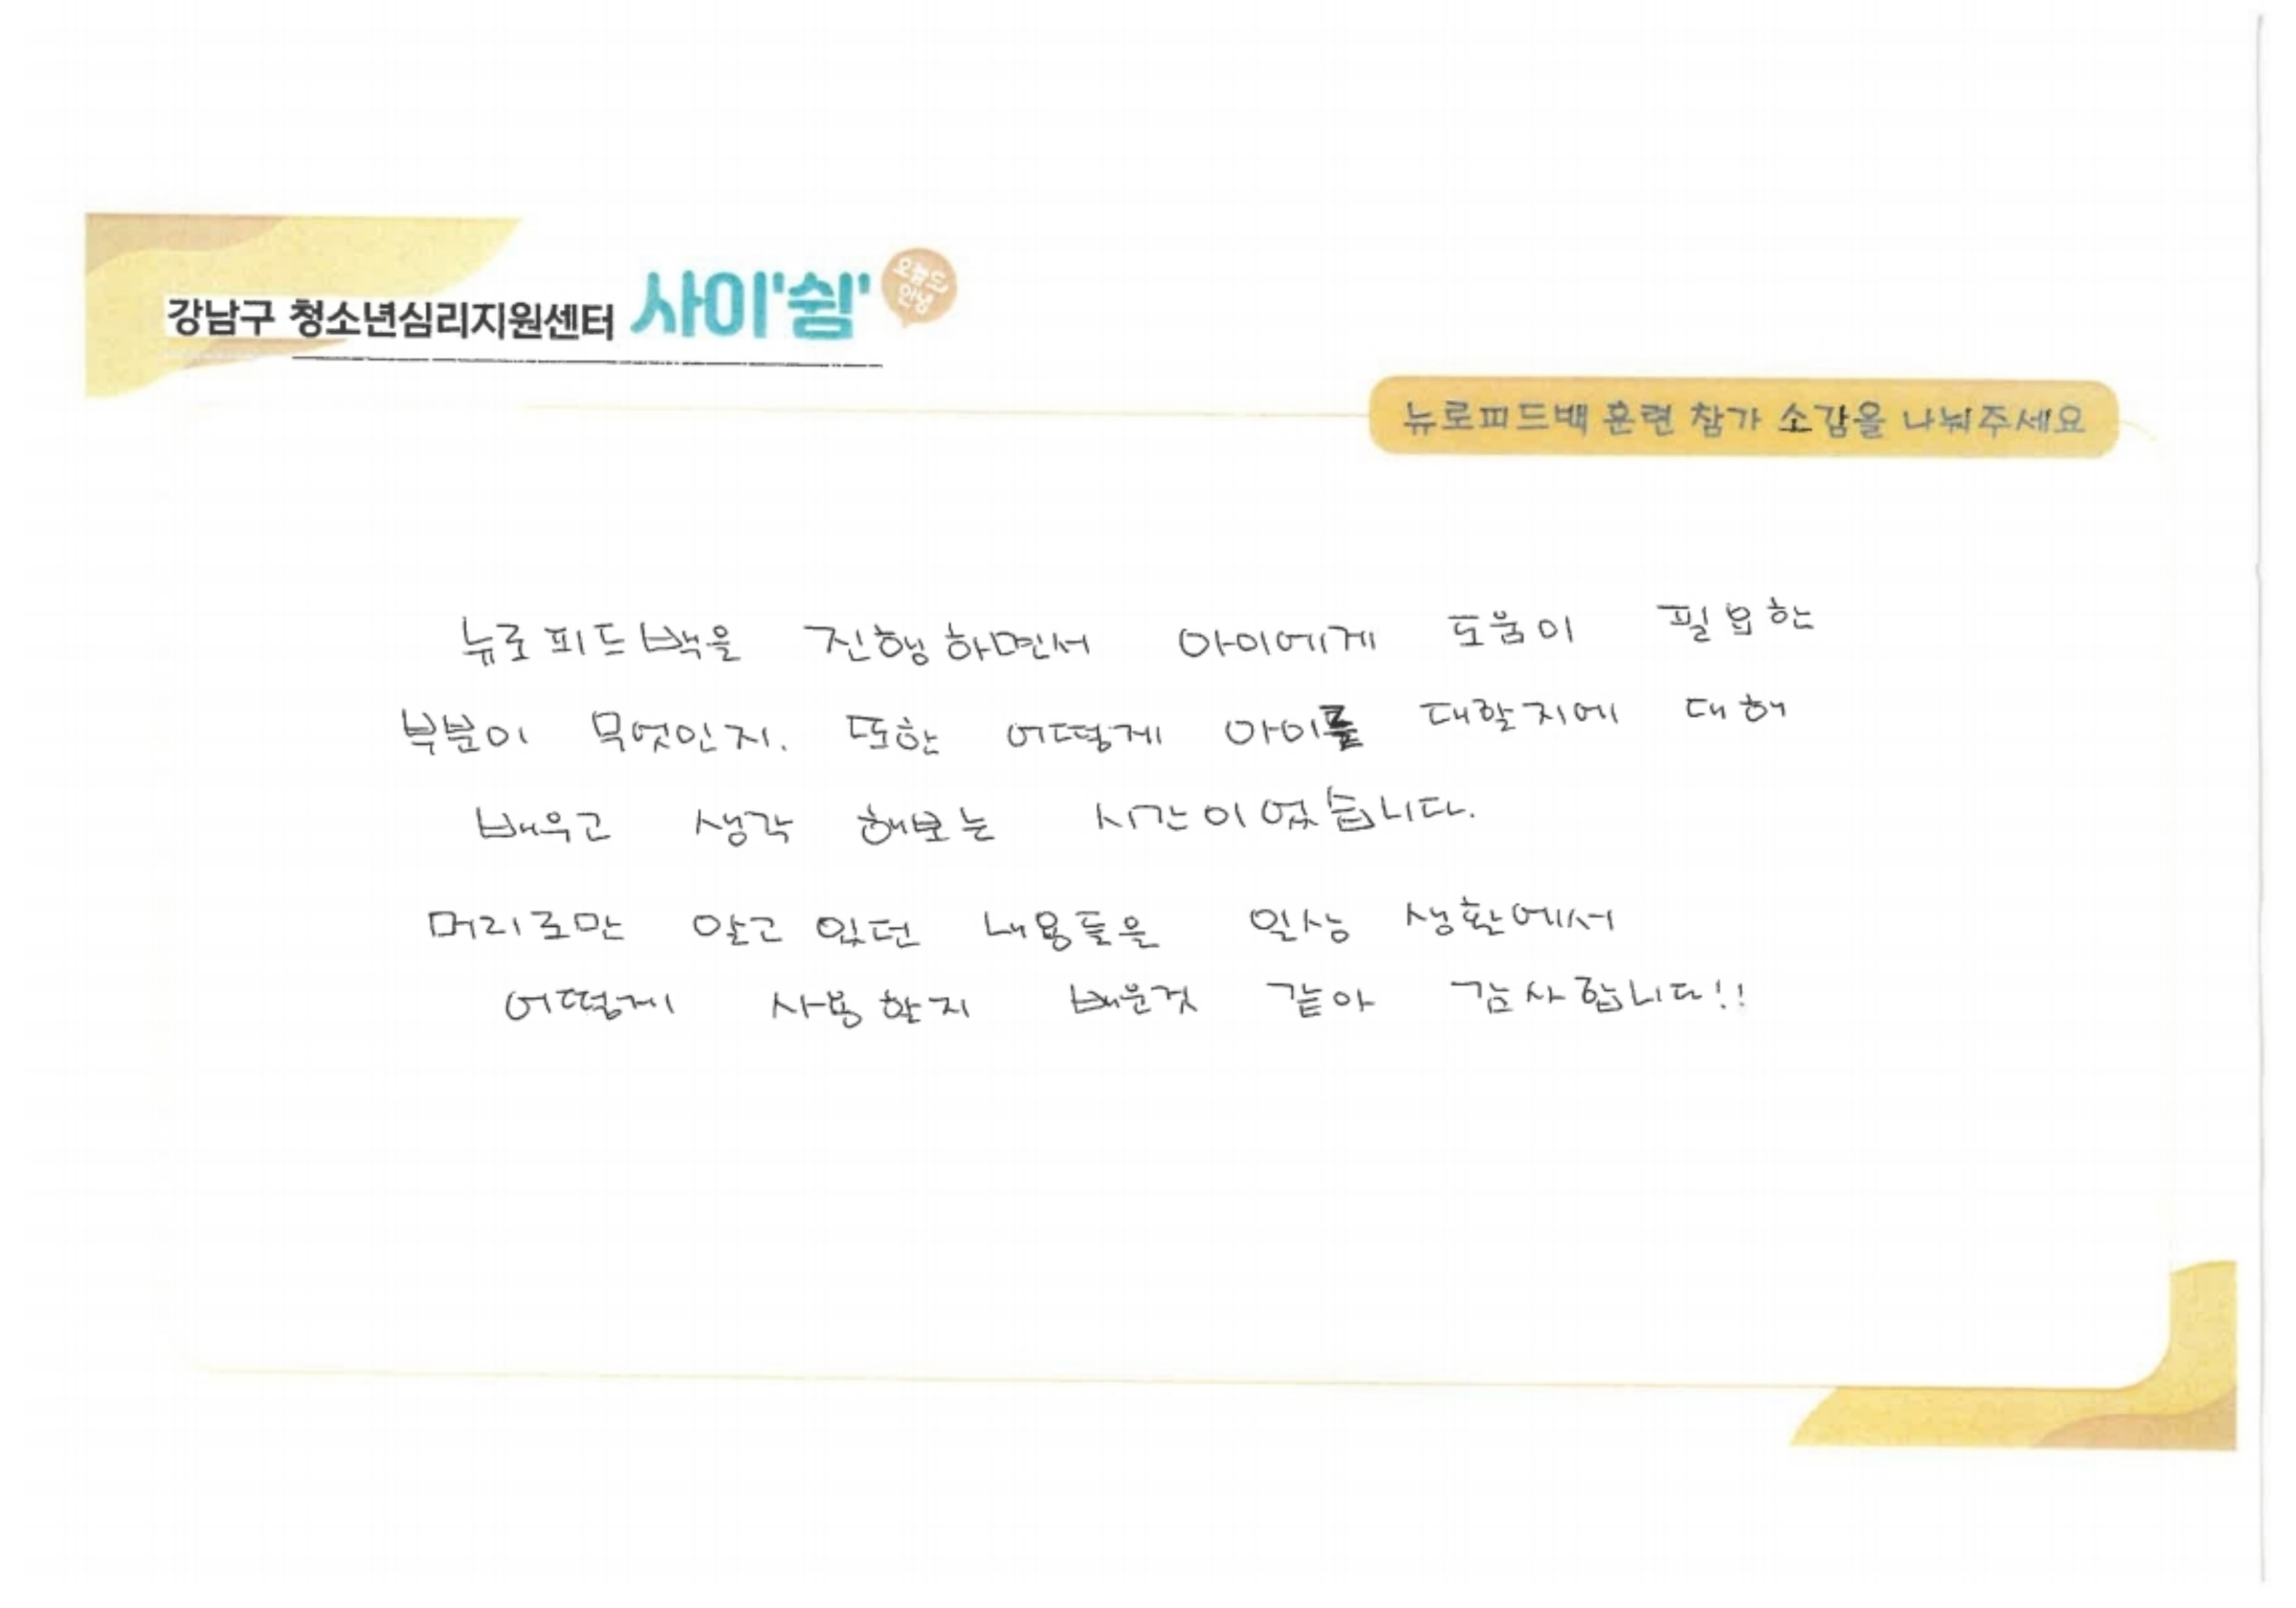 강남구 청소년심리지원센터 사이'쉼' 오늘도 안녕
뉴로피드백 훈련 참가 소감을 나눠주세요
뉴로피드백을 진행하면서 아이에게 도움이 필요한
부분이 무엇인지. 또한 어떻게 아이를 대할지에 대해
배우고 생각 해보는 시간이었습니다.
머리로만 알고 있던 내용들을 일상 생활에서
어떻게 사용할지 배운것 같아 감사합니다!!